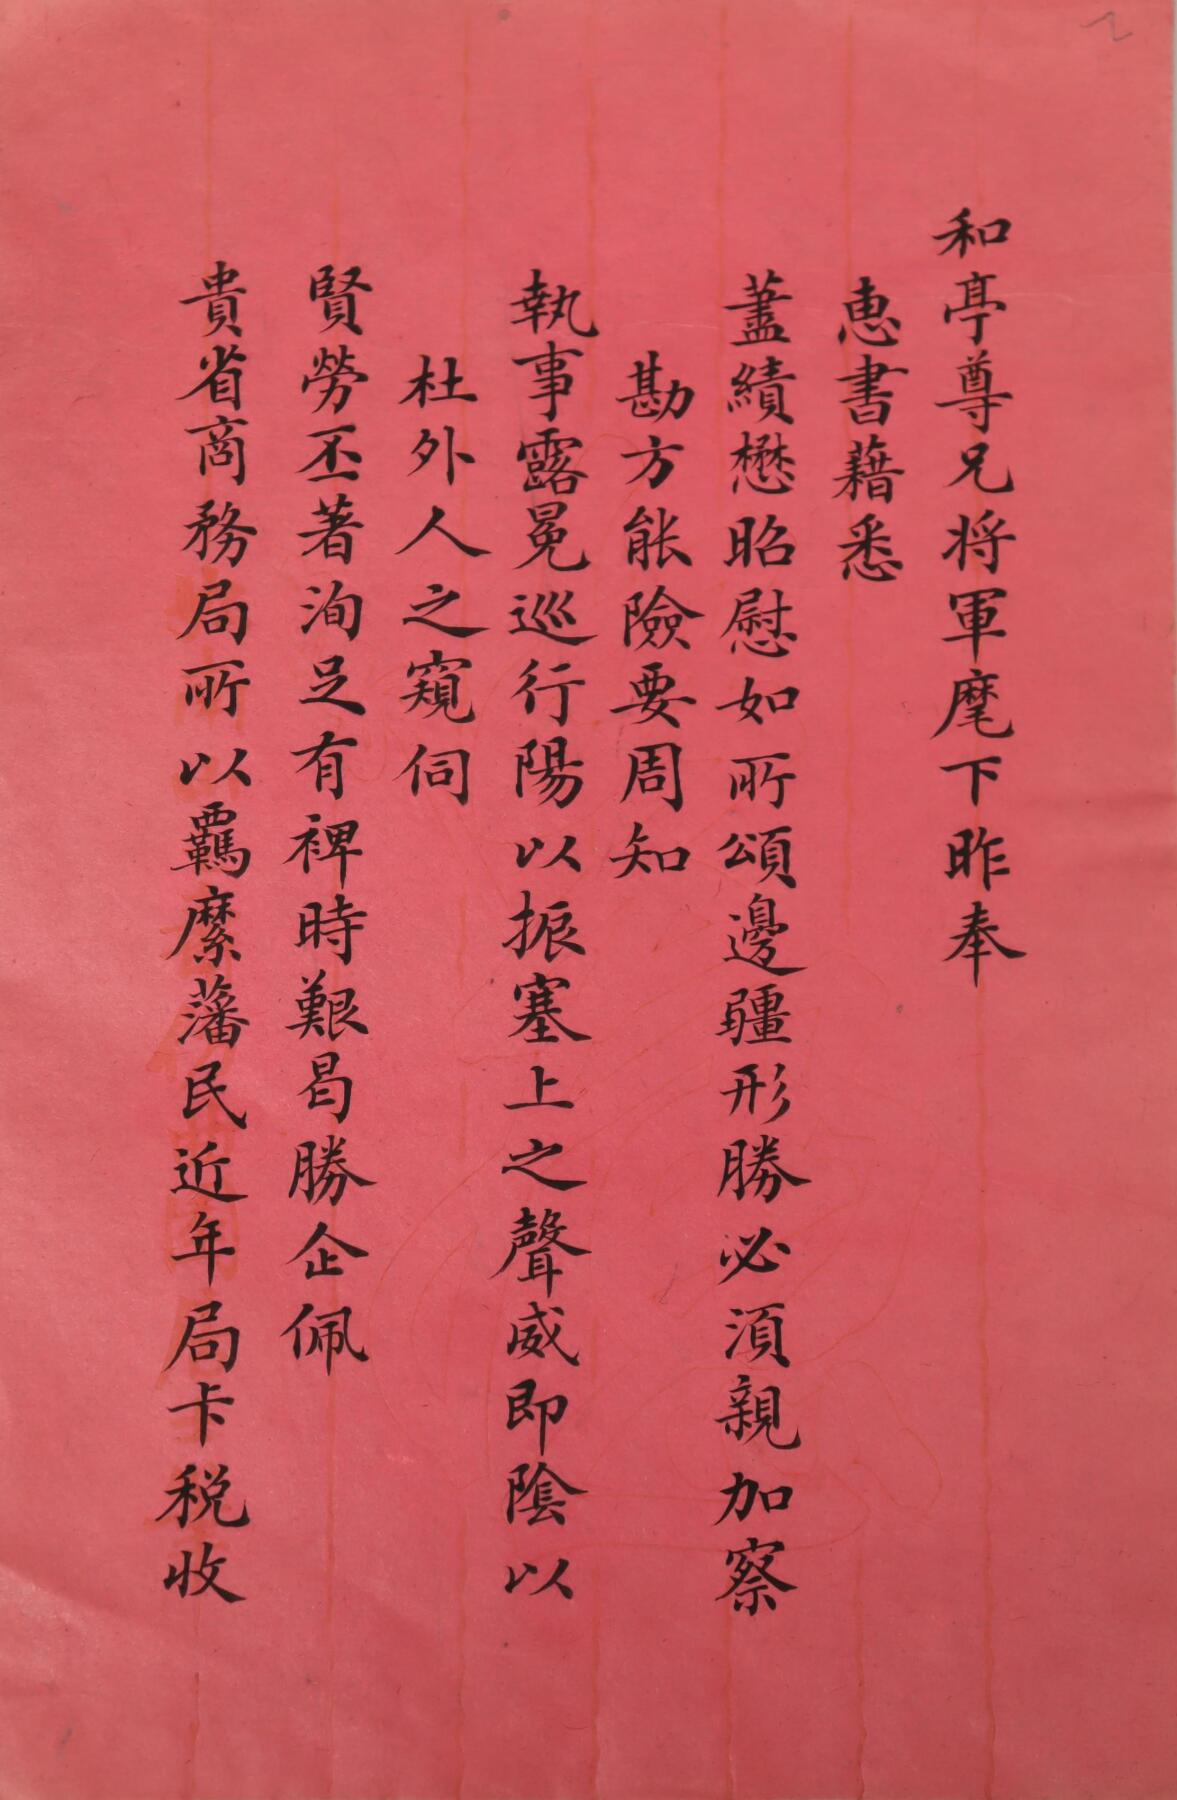 和亭尊兄将軍麾下昨奉
惠書藉悉
藎績懋昭慰如所頌邊疆形勝必須親加察
勘方能險要周知
執事露冕巡行陽以振塞上之聲威即陰以
杜外人之窺伺
賢勞丕著洵足有裨時艱曷勝企佩
貴省商務局所以羈縻藩民近年局卡税收